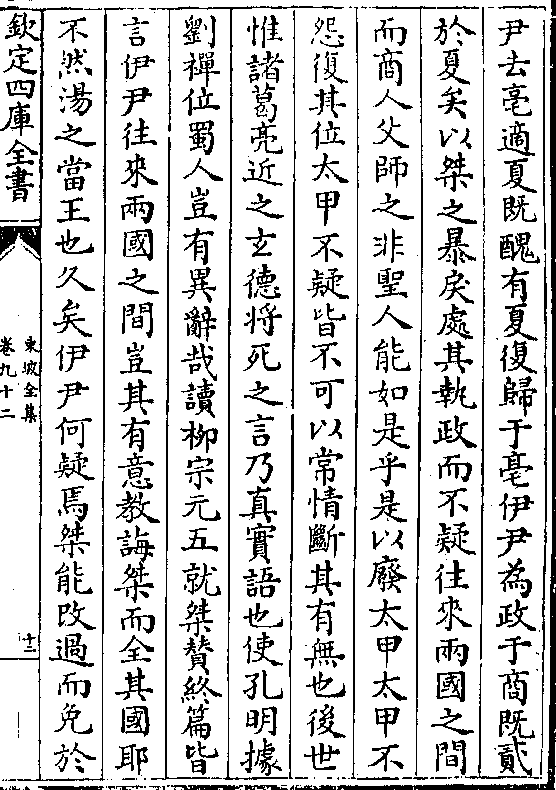 尹去亳適夏既醜有夏復歸于亳伊尹為政于商既貳
於夏矣以桀之暴戾處其執政而不疑往來兩國之間
而商人父師之非聖人能如是乎是以廢太甲太甲不
怨復其位太甲不疑皆不可以常情斷其有無也後世
惟諸葛亮近之玄德將死之言乃真實語也使孔明據
劉禪位蜀人豈有異辭哉讀柳宗元五就桀贊終篇皆
言伊尹往來兩國之間豈其有意教誨桀而全其國耶
不然湯之當王也久矣伊尹何疑焉桀能改過而免於
欽定四庫全書
東坡全集
卷九十二
十二